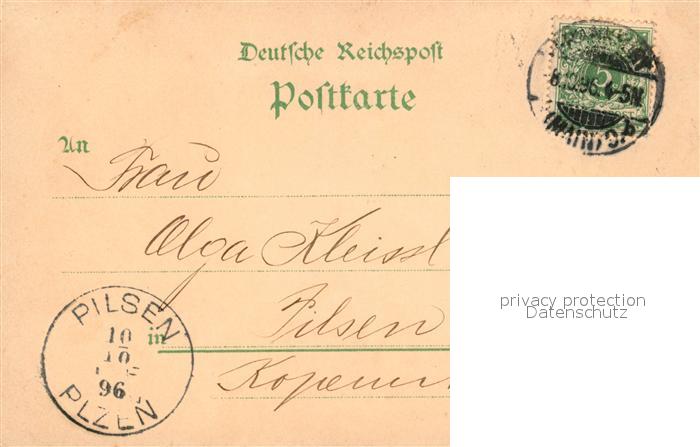 Deutsche Reichspost
Postkarte
An
Frau
Olga Kleissl
in
Pilsen
PILSEN
10
10
96
PLZEN
(MAIN)
privacy protection
Datenschutz